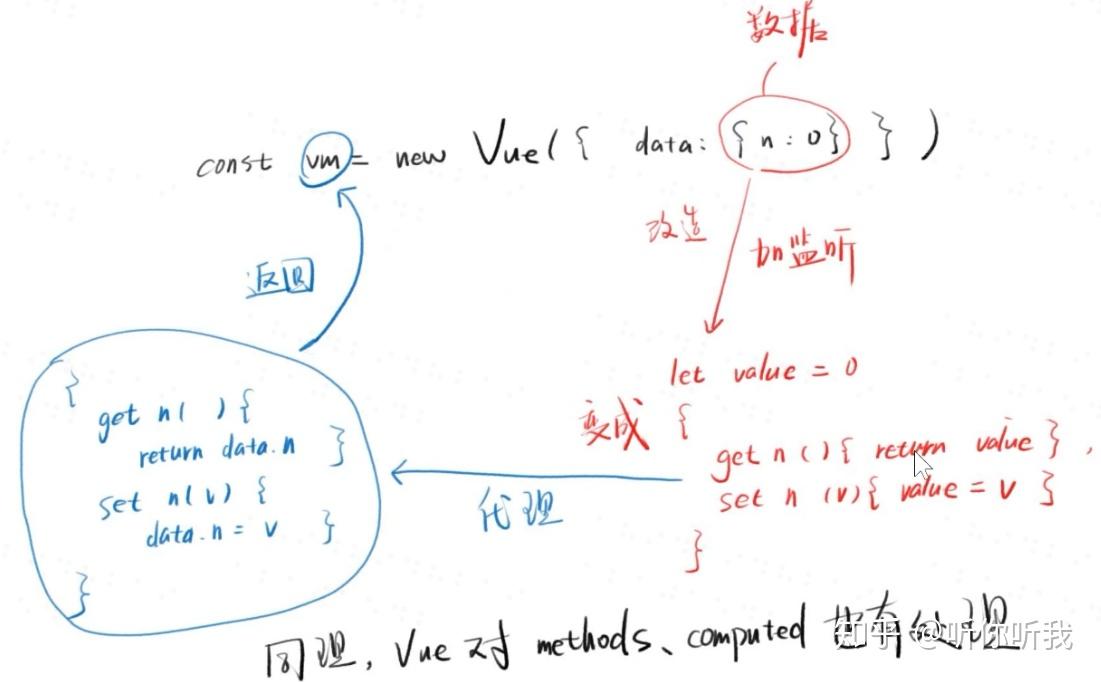 数据
const vm = new Vue({ data: {n:0} })
改造
加监听
返回
let value = 0
变成
{
get n(){ return value },
set n(v){ value = v }
}
代理
{
get n( ){
return data.n }
set n(v) {
data.n = v }
}
同理, Vue 对 methods、computed 也有处理
知乎 @听你听我